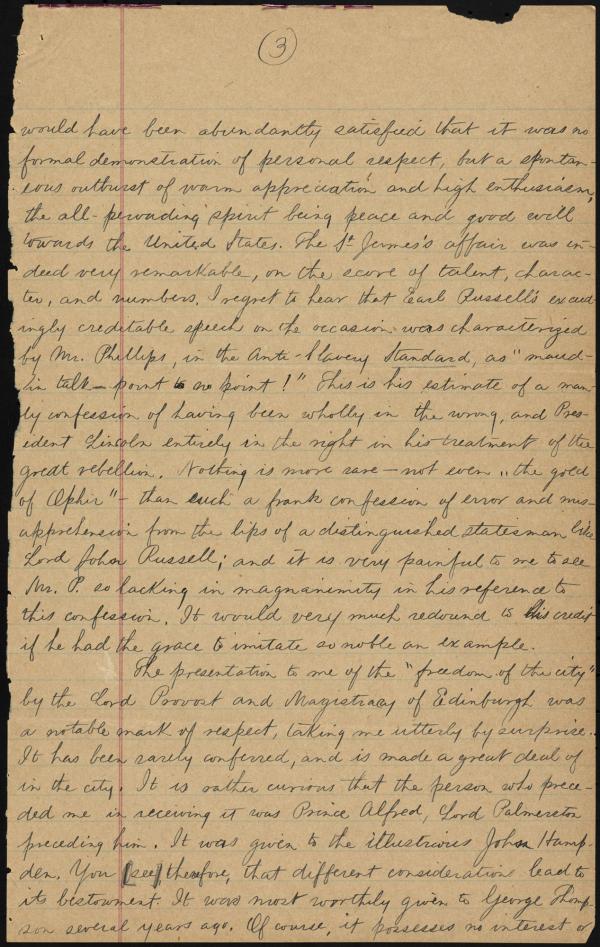 3
would have been abundantly satisfied that it was no
formal demonstration of personal respect, but a spontan-
eous outburst of warm appreciation and high enthusiasm,
the all-pervading spirit being peace and good will
towards the United States. The St. James's affair was in-
deed very remarkable, on the score of talent, charac-
ter, and numbers. I regret to hear that Earl Russell's exceed-
ingly creditable speech on the occasion was characterized
by Mr. Phillips, in the Anti-Slavery Standard, as "maud-
lin talk—point to no point!" This is his estimate of a man-
ly confession of having been wholly in the wrong, and Pres-
ident Lincoln entirely in the right in his treatment of the
great rebellion. Nothing is more rare—not even "the gold
of Ophir"—than such a frank confession of error and mis-
apprehension from the lips of a distinguished statesman like
Lord John Russell; and it is very painful to me to see
Mr. P. so lacking in magnanimity in his reference to
this confession. It would very much redound to his credit
if he had the grace to imitate so noble an example.
The presentation to me of the "freedom of the city"
by the Lord Provost and Magistracy of Edinburgh was
a notable mark of respect, taking me utterly by surprise.
It has been rarely conferred, and is made a great deal of
in the city. It is rather curious that the person who prece-
ded me in receiving it was Prince Alfred, Lord Palmerston
preceding him. It was given to the illustrious John Hamp-
den. You [see], therefore, that different considerations lead to
its bestowment. It was most worthily given to George Thomp-
son several years ago. Of course, it possesses no interest or